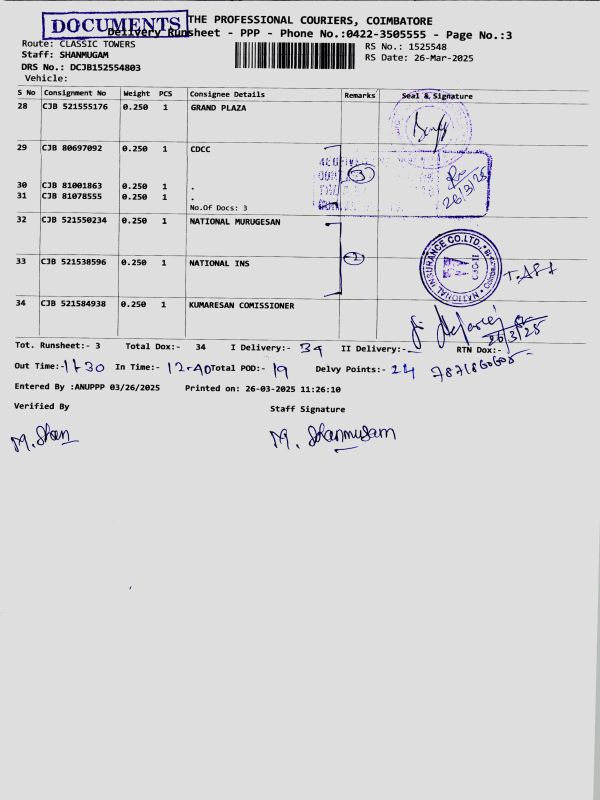 DOCUMENTS
THE PROFESSIONAL COURIERS, COIMBATORE
Delivery Runsheet - PPP - Phone No.:0422-3505555 - Page No.:3
Route: CLASSIC TOWERS
RS No.: 1525548
Staff: SHANMUGAM
RS Date: 26-Mar-2025
DRS No.: DCJB152554803
Vehicle:
S No Consignment No Weight PCS Consignee Details Remarks Seal & Signature
28 CJB 521555176 0.250 1 GRAND PLAZA
29 CJB 80697092 0.250 1 CDCC
30 CJB 81001863 0.250 1 .
31 CJB 81078555 0.250 1 .
No.Of Docs: 3
3
26/3/25
32 CJB 521550234 0.250 1 NATIONAL MURUGESAN
33 CJB 521538596 0.250 1 NATIONAL INS
2
NATIONAL INSURANCE CO.LTD.
34 CJB 521584938 0.250 1 KUMARESAN COMISSIONER
26/3/25
Tot. Runsheet:- 3 Total Dox:- 34 I Delivery:- 34 II Delivery:- RTN Dox:-
Out Time:- 11-30 In Time:- 12-40 Total POD:- 19 Delvy Points:- 24
Entered By :ANUPPP 03/26/2025 Printed on: 26-03-2025 11:26:10
Verified By
Staff Signature
M. Shan
M. Shanmugam